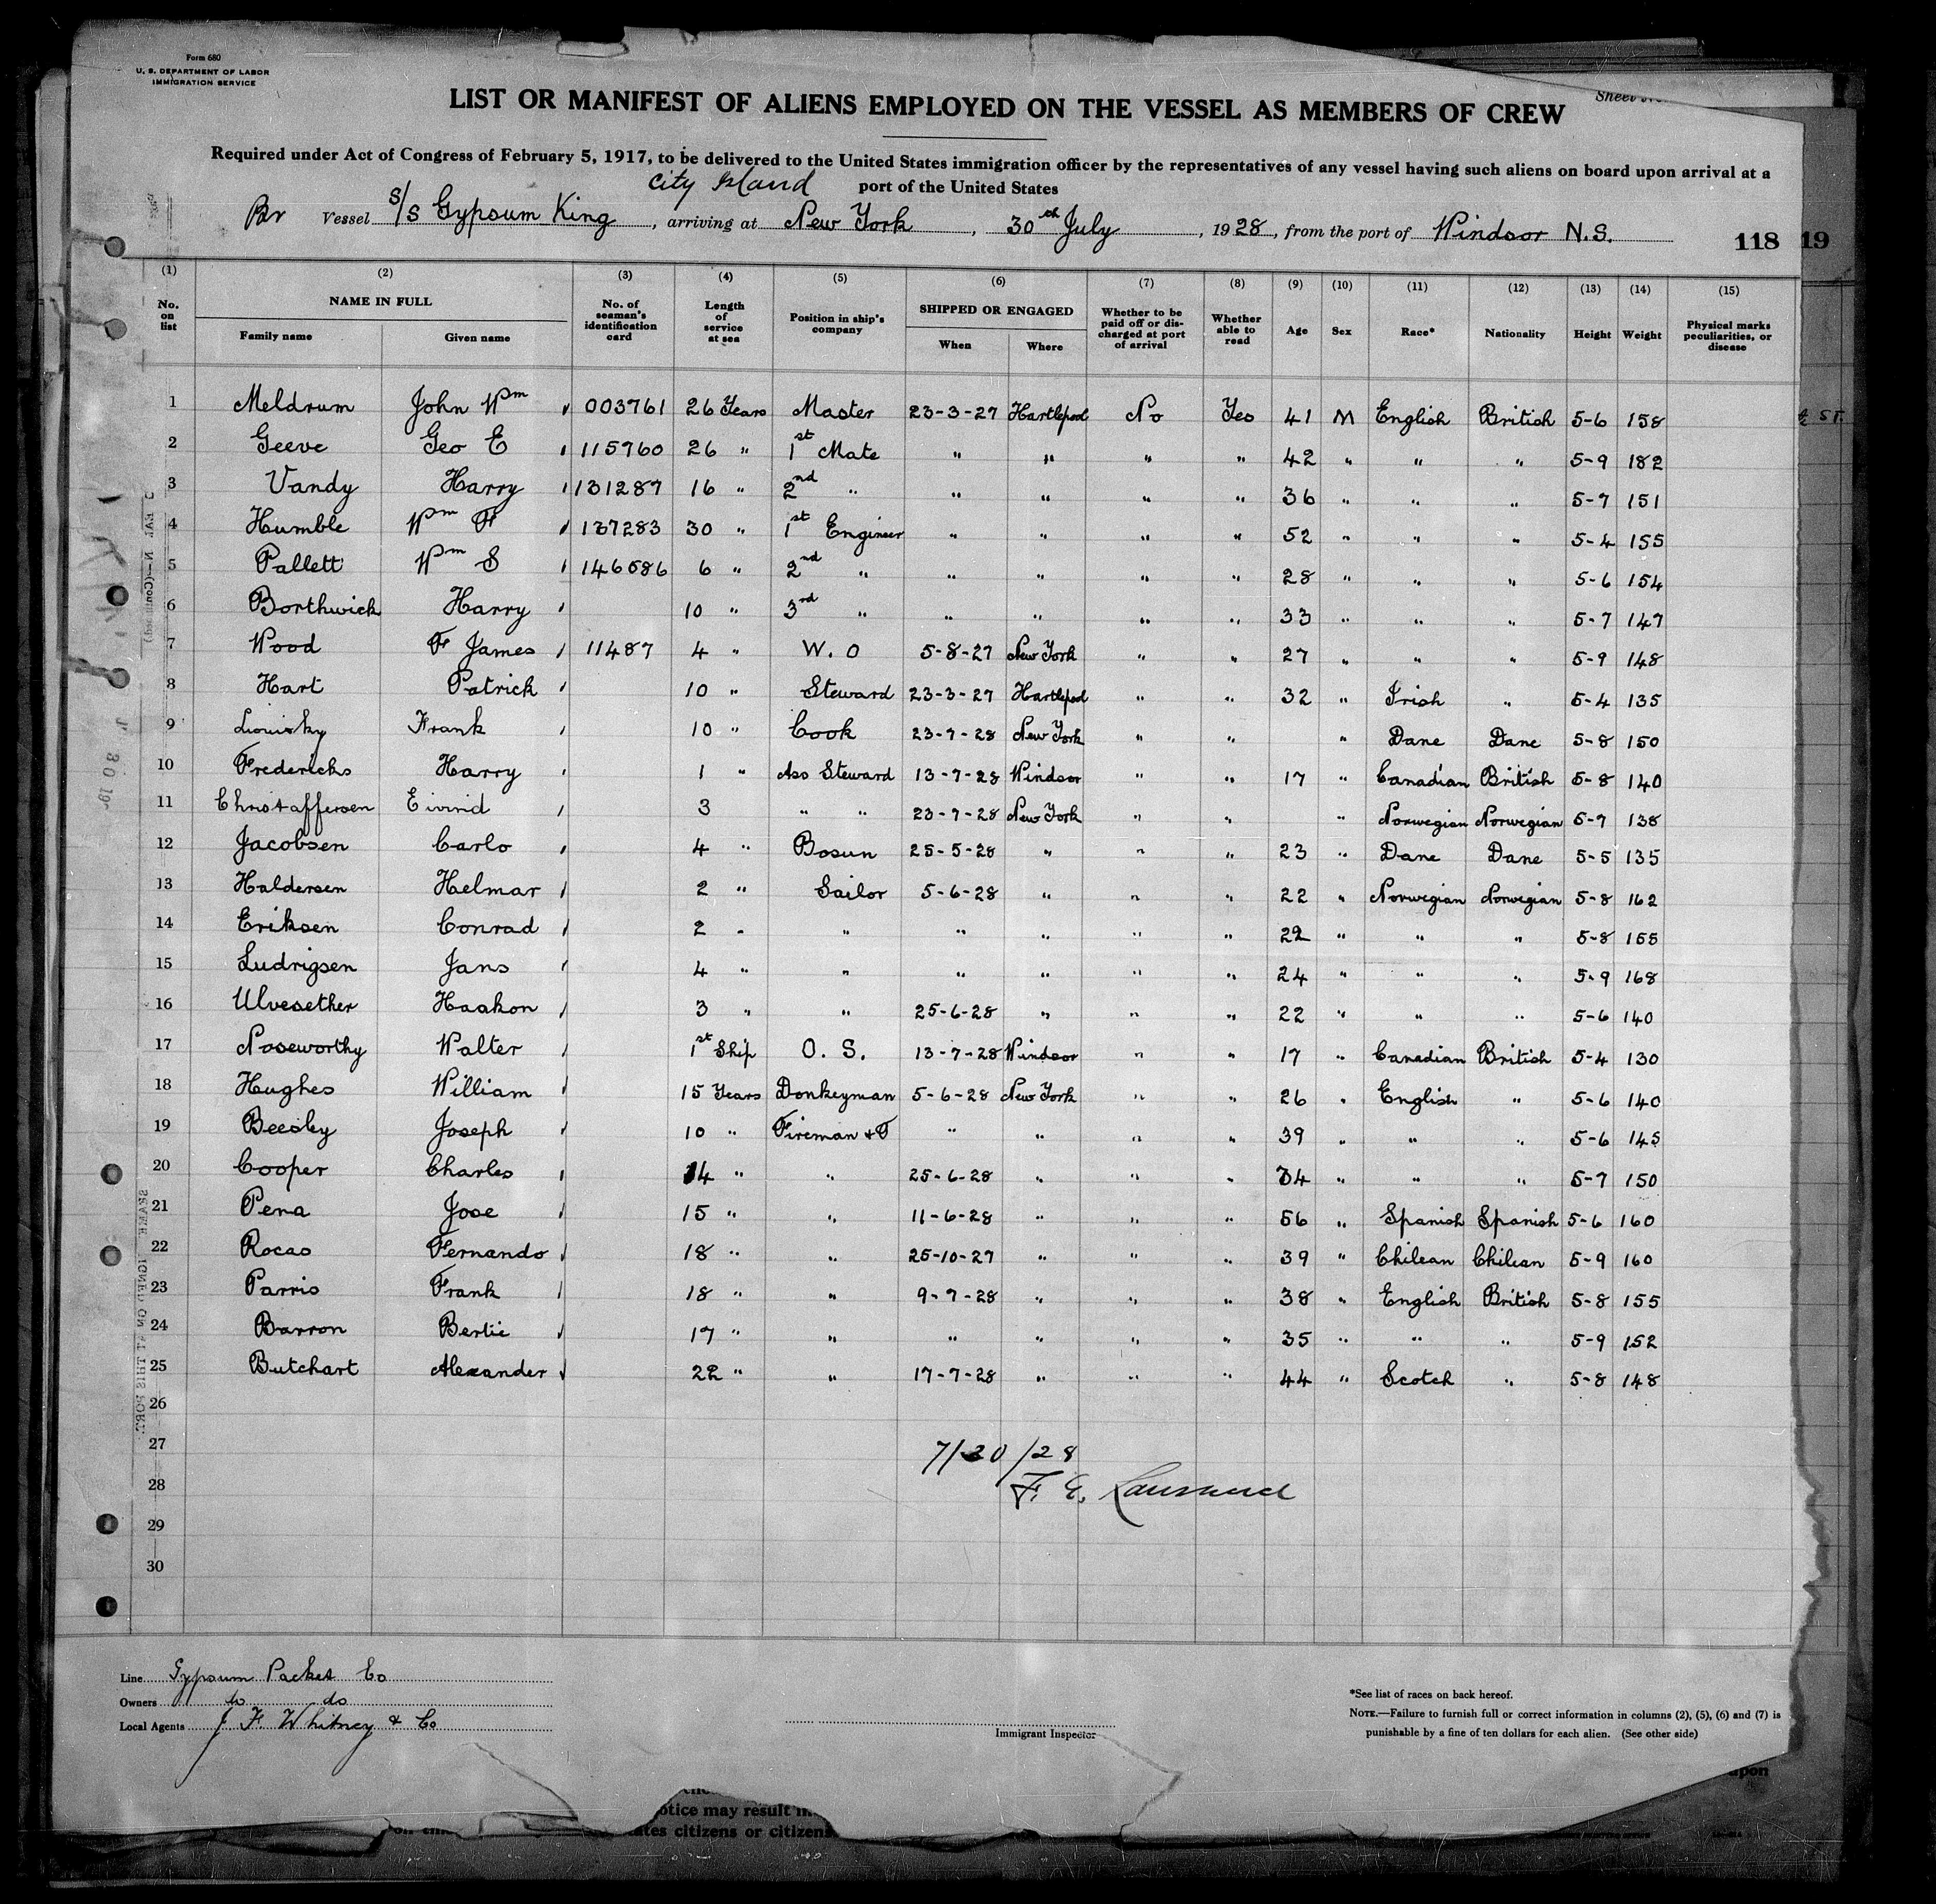 Form 680
U. S. DEPARTMENT OF LABOR
IMMIGRATION SERVICE
Sheet No.
LIST OR MANIFEST OF ALIENS EMPLOYED ON THE VESSEL AS MEMBERS OF CREW
Required under Act of Congress of February 5, 1917, to be delivered to the United States immigration officer by the representatives of any vessel having such aliens on board upon arrival at a
port of the United States
City Island
Br Vessel S/S Gypsum King, arriving at New York, 30th July, 1928, from the port of Windsor N.S. 118 19
(1) (2) (3) (4) (5) (6) (7) (8) (9) (10) (11) (12) (13) (14) (15)
No. on list NAME IN FULL Family name Given name No. of seaman's identification card Length of service at sea Position in ship's company SHIPPED OR ENGAGED When Where Whether to be paid off or discharged at port of arrival Whether able to read Age Sex Race* Nationality Height Weight Physical marks peculiarities, or disease
1 Meldrum John Wm 003761 26 Years Master 23-3-27 Hartlepool No Yes 41 M English British 5-6 158
2 Geeve Geo E 115760 26 " 1st Mate " " " " 42 " " " 5-9 182
3 Vandy Harry 131287 16 " 2nd " " " " " 36 " " " 5-7 151
4 Humble Wm F 137283 30 " 1st Engineer " " " " 52 " " " 5-4 155
5 Pallett Wm S 146586 6 " 2nd " " " " " 28 " " " 5-6 154
6 Borthwick Harry 10 " 3rd " " " " " 33 " " " 5-7 147
7 Wood F James 11487 4 " W. O 5-8-27 New York " " 27 " " " 5-9 148
8 Hart Patrick 10 " Steward 23-3-27 Hartlepool " " 32 " Irish " 5-4 135
9 Frank 10 " Cook 23-7-28 New York " " " Dane Dane 5-8 150
10 Fredericks Harry 1 " Ass Steward 13-7-28 Windsor " " 17 " Canadian British 5-8 140
11 Christaffersen Eivind 3 " " 23-7-28 New York " " " Norwegian Norwegian 5-7 138
12 Jacobsen Carlo 4 " Bosun 25-5-28 " " " 23 " Dane Dane 5-5 135
13 Haldersen Helmar 2 " Sailor 5-6-28 " " " 22 " Norwegian Norwegian 5-8 162
14 Eriksen Conrad 2 " " " " " " 22 " " " 5-8 155
15 Ludrigsen Jans 4 " " " " " " 24 " " " 5-9 168
16 Ulvesether Haakon 3 " " 25-6-28 " " " 22 " " " 5-6 140
17 Noseworthy Walter 1st Ship O. S. 13-7-28 Windsor " " 17 " Canadian British 5-4 130
18 Hughes William 15 Years Donkeyman 5-6-28 New York " " 26 " English " 5-6 140
19 Beesley Joseph 10 " Fireman & T " " " " 39 " " " 5-6 145
20 Cooper Charles 14 " " 25-6-28 " " " 34 " " " 5-7 150
21 Pena Jose 15 " " 11-6-28 " " " 56 " Spanish Spanish 5-6 160
22 Rocas Fernando 18 " " 25-10-27 " " " 39 " Chilean Chilean 5-9 160
23 Parris Frank 18 " " 9-7-28 " " " 38 " English British 5-8 155
24 Barron Bertie 17 " " " " " " 35 " " " 5-9 152
25 Butchart Alexander 22 " " 17-7-28 " " " 44 " Scotch " 5-8 148
26
27
28
29
30
7/30/28
F. E.
Line Gypsum Packet Co
Owners do do
Local Agents J F. Whitney & Co
Immigrant Inspector
*See list of races on back hereof.
NOTE.—Failure to furnish full or correct information in columns (2), (5), (6) and (7) is
punishable by a fine of ten dollars for each alien. (See other side)
upon
otice may result in
ates citizens or citizens